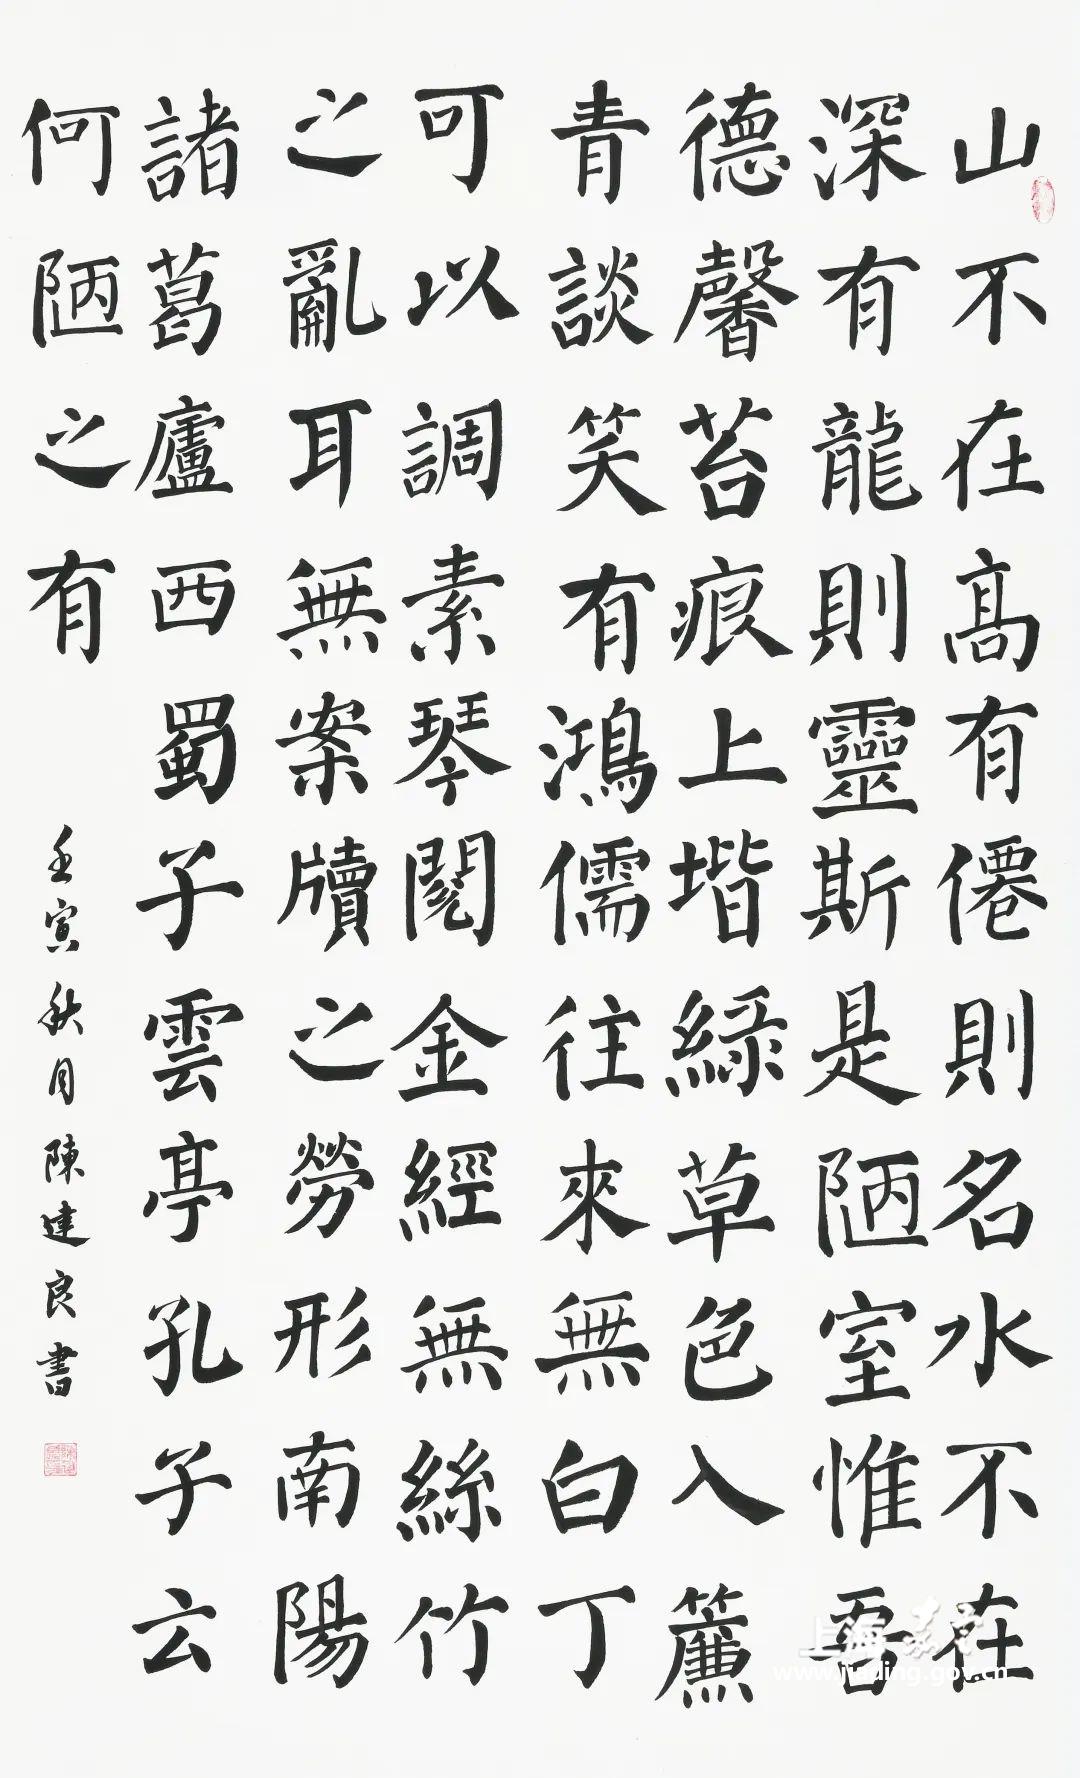 山不在髙有僊則名水不在
深有龍則靈斯是陋室惟吾
德馨苔痕上堦綠草色入簾
青談笑有鴻儒往來無白丁
可以調素琴閱金經無絲竹
之亂耳無案牘之勞形南陽
諸葛廬西蜀子雲亭孔子云
何陋之有
壬寅秋月陳建良書
上海嘉定
www.jiading.gov.cn